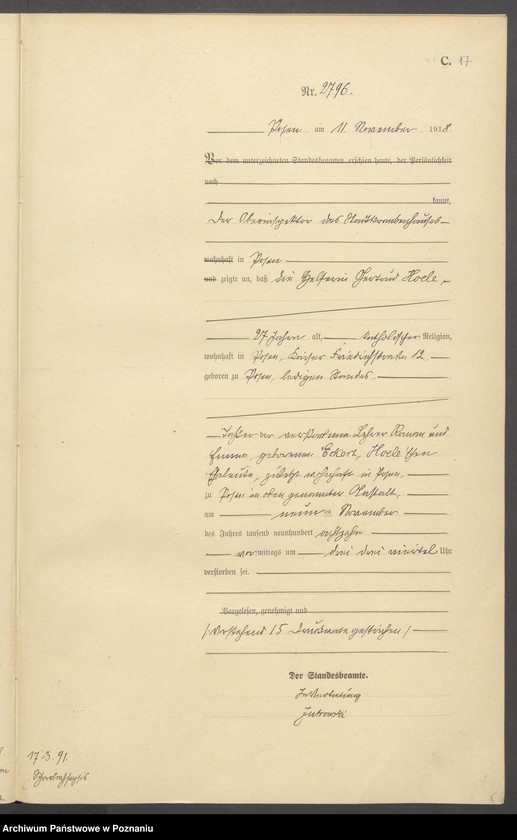 C. 17
Nr. 2796.
Posen am 11. November 1918.
Vor dem unterzeichneten Standesbeamten erschien heute, der Persönlichkeit
nach
kannt,
Der Oberinspektor des Stadtkrankenhauses
wohnhaft in Posen
und zeigte an, daß die Gertrud Hoele,
27 Jahre alt, katholischer Religion,
wohnhaft in Posen, Kaiser Friedrichstraße 12
geboren zu Posen, ledigen Standes,
Tochter der verstorbenen Lehrer Roman und
Emma, geborenen Eckert, Hoele'schen
Eheleute, zuletzt wohnhaft in Posen,
zu Posen in oben genannter Anstalt,
am neunten November
des Jahres tausend neunhundert achtzehn
vormittags um drei drei viertel Uhr
verstorben sei.
Vorgelesen, genehmigt und
(Vorstehend 15 Druckworte gestrichen)
Der Standesbeamte.
In Vertretung
17.3.91.
Archiwum Państwowe w Poznaniu